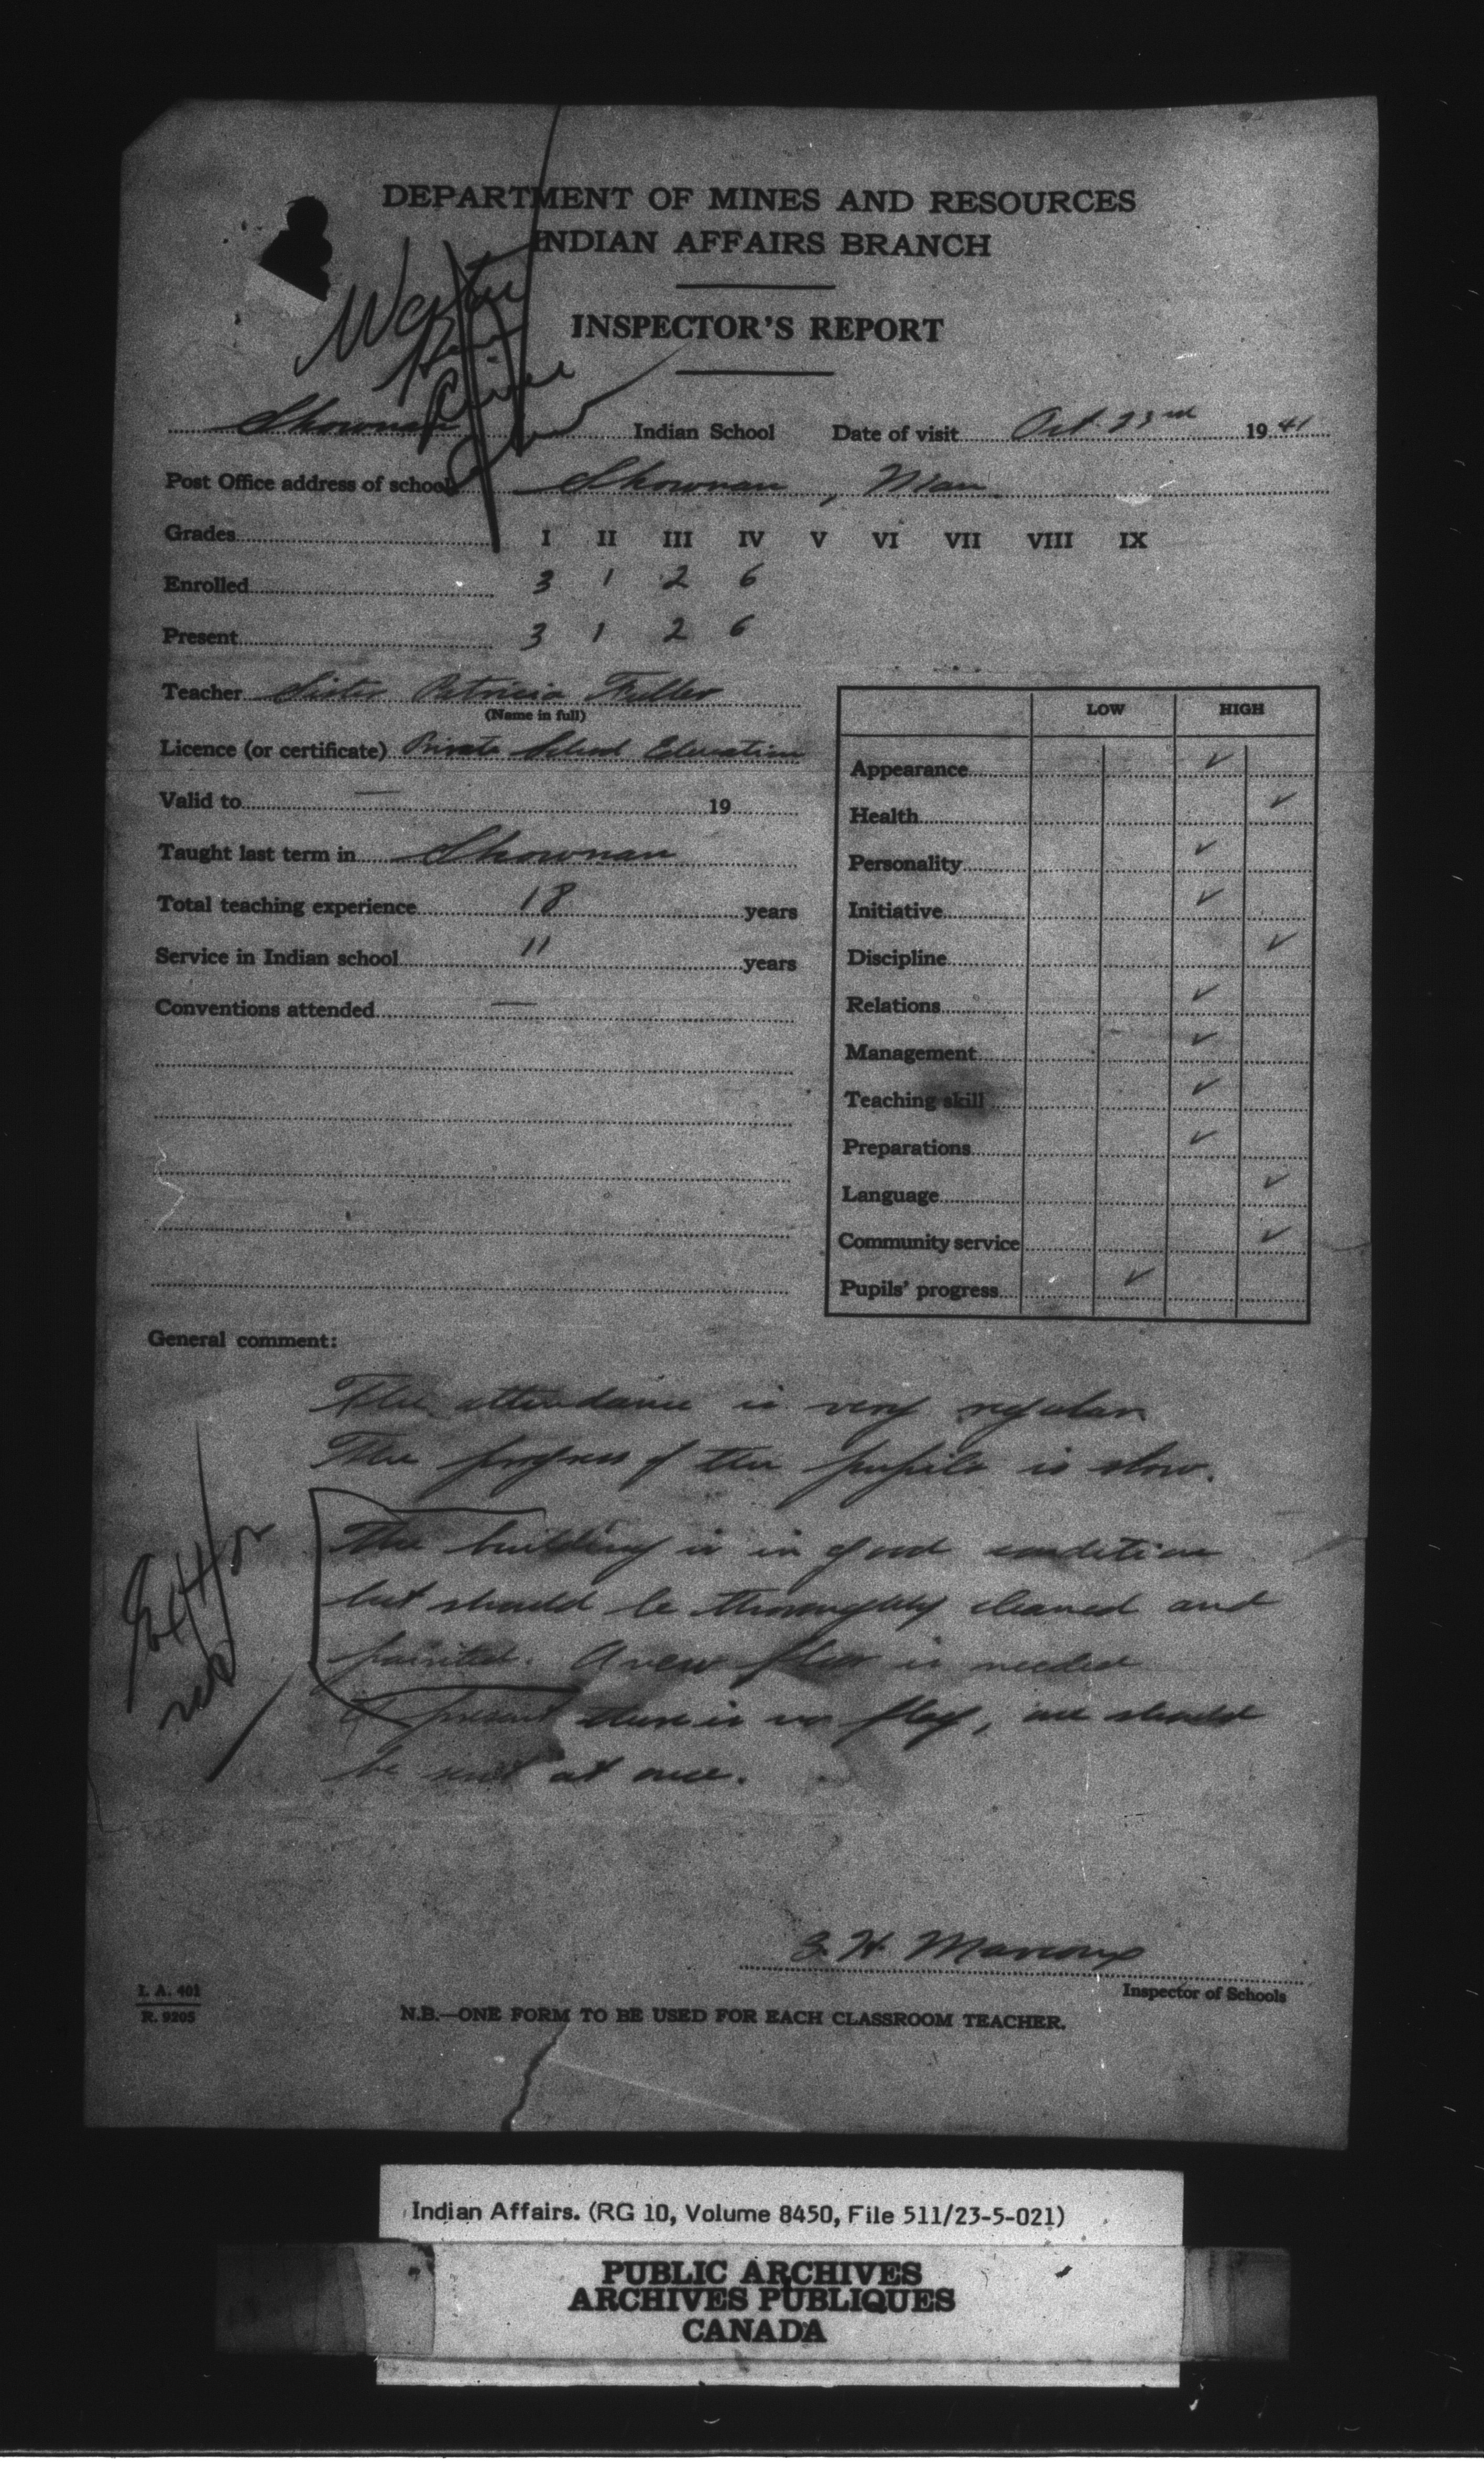 DEPARTMENT OF MINES AND RESOURCES
INDIAN AFFAIRS BRANCH
INSPECTOR'S REPORT
Water
Hen
River
Shownan Indian School Date of visit Oct. 23rd 1941
Post Office address of school Shownan, Man.
Grades I II III IV V VI VII VIII IX
Enrolled 3 1 2 6
Present 3 1 2 6
Teacher Sister Patricia Fuller
(Name in full)
Licence (or certificate) Private School Education
Valid to — 19
Taught last term in Shownan
Total teaching experience 18 years
Service in Indian school 11 years
Conventions attended —
LOW HIGH
Appearance ✓
Health ✓
Personality ✓
Initiative ✓
Discipline ✓
Relations ✓
Management ✓
Teaching skill ✓
Preparations ✓
Language ✓
Community service ✓
Pupils' progress ✓
General comment:
The attendance is very regular
The progress of the pupils is slow.
The building is in good condition
but should be thoroughly cleaned and
painted. A new floor is needed
At present there is no flag, one should
be sent at once.
Marcoux
Inspector of Schools
I. A. 401
R. 9205
N.B.—ONE FORM TO BE USED FOR EACH CLASSROOM TEACHER.
Indian Affairs. (RG 10, Volume 8450, File 511/23-5-021)
PUBLIC ARCHIVES
ARCHIVES PUBLIQUES
CANADA